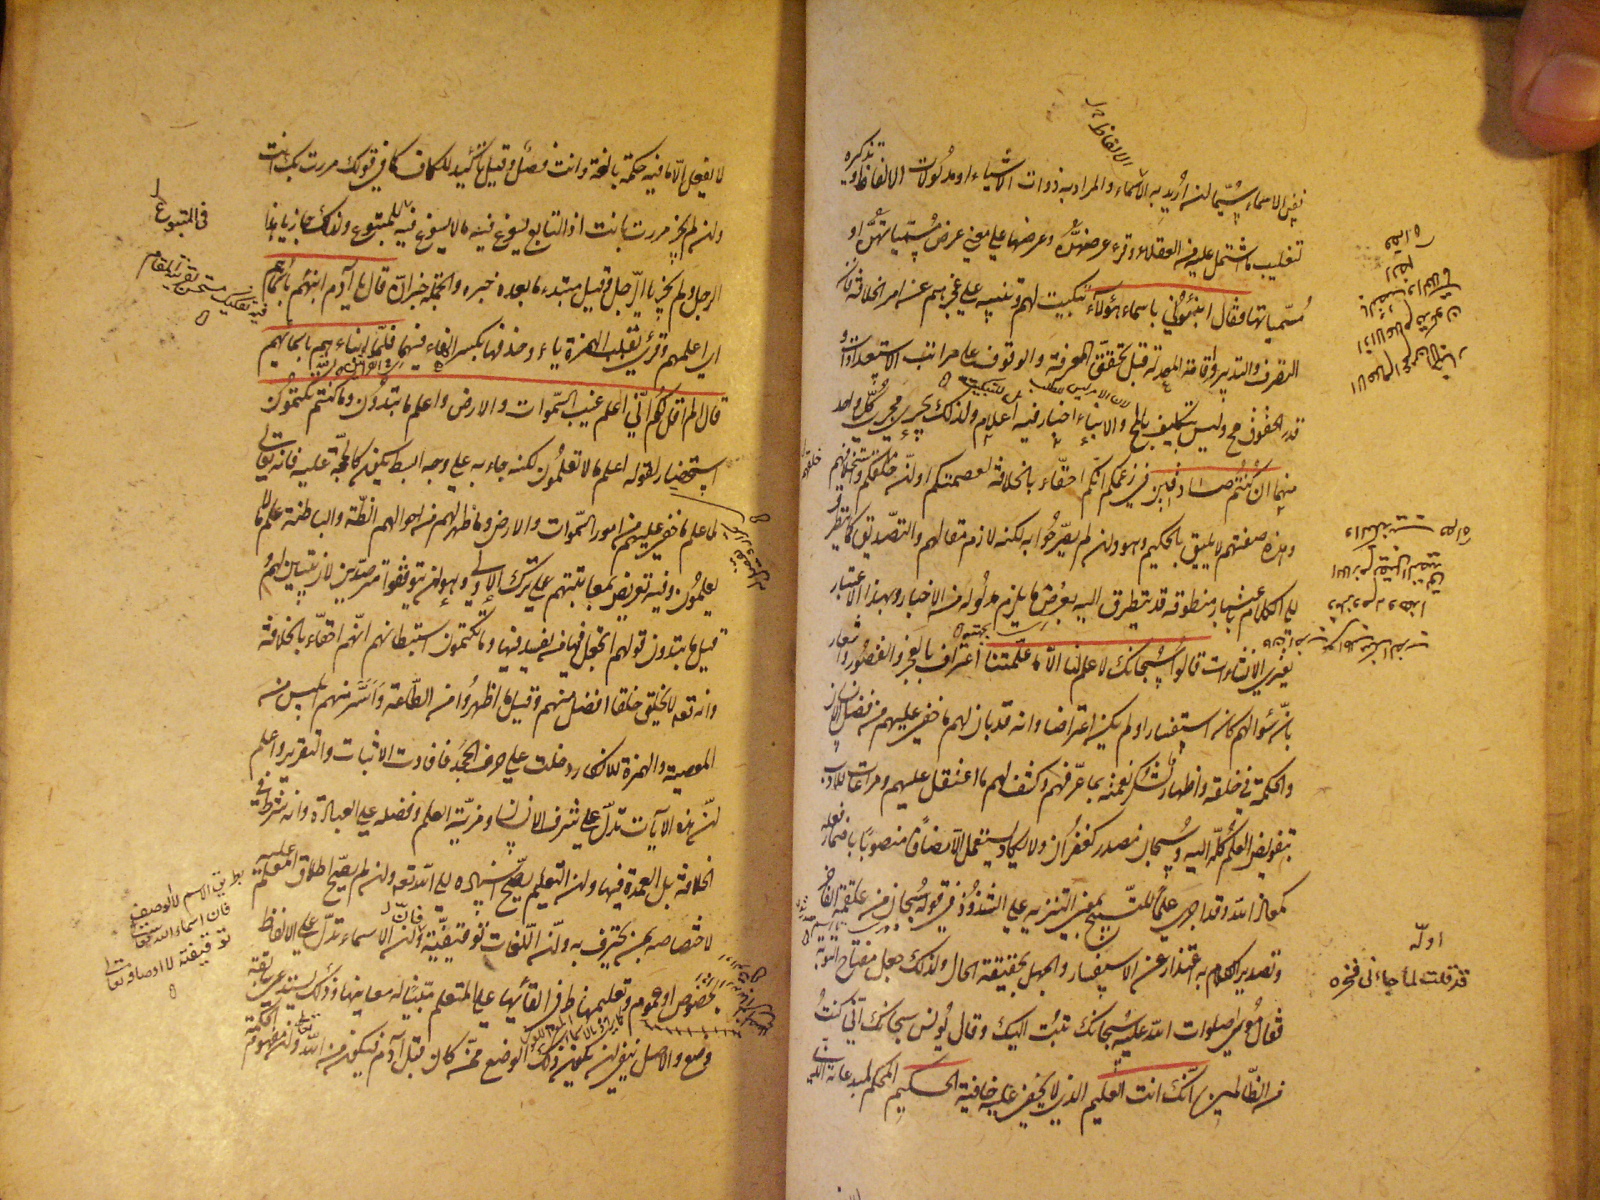 نفس الاسماء سيما ان اريد به الاسماء والمراد به ذوات الاشياء او مدلولات الالفاظ وتذكيره
تغليب ما اشتمل عليه من العقلاء وقرئ عرضهن وعرضها على معنى عرض مسمياتهن او
مسمياتها فقال انبئوني باسماء هؤلاء تبكيت لهم وتنبيه على عجزهم عن امر الخلافة فان
التصرف والتدبير واقامة المعدلة قبل تحقق المعرفة والوقوف على مراتب الاستعدادات
وقدر الحقوق مح وليس بتكليف بالمح والانباء اخبار فيه اعلام ولذلك يجري مجرى كل واحد
منهما ان كنتم صادقين في زعمكم انكم احقاء بالخلافة لعصمتكم او ان خلقهم واستخلافهم
وهذه صفتهم لا يليق بالحكيم وهو وان لم يصرحوا به لكنه لازم مقالهم والتصديق كما يتطرق
الى الكلام باعتبار منطوقه قد يتطرق اليه بعرض ما يلزم مدلوله من الاخبار وبهذا الاعتبار
يعتري الانشاءات قالوا سبحانك لا علم لنا الا ما علمتنا اعتراف بالعجز والقصور واشعار
بان سؤالهم كان استفسارا ولم يكن اعتراضا وانه قد بان لهم ما خفي عليهم من فضل الانسان
والحكمة في خلقه واظهار لشكر نعمته بما عرفهم وكشف لهم ما اعتقل عليهم ومراعاة للادب
بتفويض العلم كله اليه وسبحان مصدر كغفران ولا يكاد يستعمل الا مضافا منصوبا باضمار فعله
كمعاذ الله وقد اجري علما للتسبيح بمعنى التنزيه على الشذوذ في قوله سبحان من علقمة الفاخر
وتصدير الكلام به اعتذار عن الاستفسار والجهل بحقيقة الحال ولذلك جعل مفتاح التوبة
فقال موسى صلوات الله عليه سبحانك تبت اليك وقال يونس سبحانك اني كنت
من الظالمين انك انت العليم الذي لا يخفى عليه خافية الحكيم المحكم لمبدعاته الذي
اوله
قد قلت لما جاءني فخره
لا يفعل الا ما فيه حكمة بالغة وانت فصل وقيل تاكيد للكاف كما في قولك مررت بك انت
وان لم يجز مررت بانت اذ التابع يسوغ فيه ما لا يسوغ فيه المتبوع ولذلك جاز يا هذا
الرجل ولم يجز يا الرجل وقيل مبتدء ما بعده خبره والجملة خبر ان قال يا آدم انبئهم باسمائهم
اي اعلمهم وقرئ بقلب الهمزة ياء وحذفها بكسر الهاء فيهما فلما انباءهم باسمائهم
قال الم اقل لكم اني اعلم غيب السموات والارض واعلم ما تبدون وما كنتم تكتمون
استحضار لقوله اعلم ما لا تعلمون لكنه جاء به على وجه ابسط ليكون كالحجة عليه فانه تعالى
لما علم ما خفي عليهم من امور السموات والارض وما ظهر لهم من احوالهم الظاهرة والباطنة علم ما لا
يعلمون وفيه تعريض بمعاتبتهم على ترك الاولى وهو ان يتوقفوا مترصدين لان يبين لهم
قيل ما تبدون قولهم اتجعل فيها من يفسد فيها وما تكتمون استبطانهم انهم احقاء بالخلافة
وانه تعه لا يخلق خلقا افضل منهم وقيل ما اظهروا من الطاعة واسر منهم ابليس من
المعصية والهمزة للانكار دخلت على حرف الجحد فافادت الاثبات والتقرير واعلم
ان هذه الآيات تدل على شرف الانسان ومزية العلم وفضله على العبادة وانه شرط في
الخلافة بل العمدة فيها وان التعليم يصح اسناده الى الله تعه وان لم يصح اطلاق المعلم عليه
لاختصاصه بمن يحترف به وان اللغات توقيفية فان الاسماء تدل على الالفاظ
بخصوص او عموم وتعليمها ظاهر في القائها على المتعلم مبينا له معانيها وذلك يستدعي سابقة
وضع والاصل ينفي ان يكون ذلك الوضع ممن كان قبل آدم فيكون من الله تعالى وان مفهوم الحكمة
بطريق الاسم لا الوصفي
فان اسماء الله تعالى
توقيفية لا اوصافه تعالى